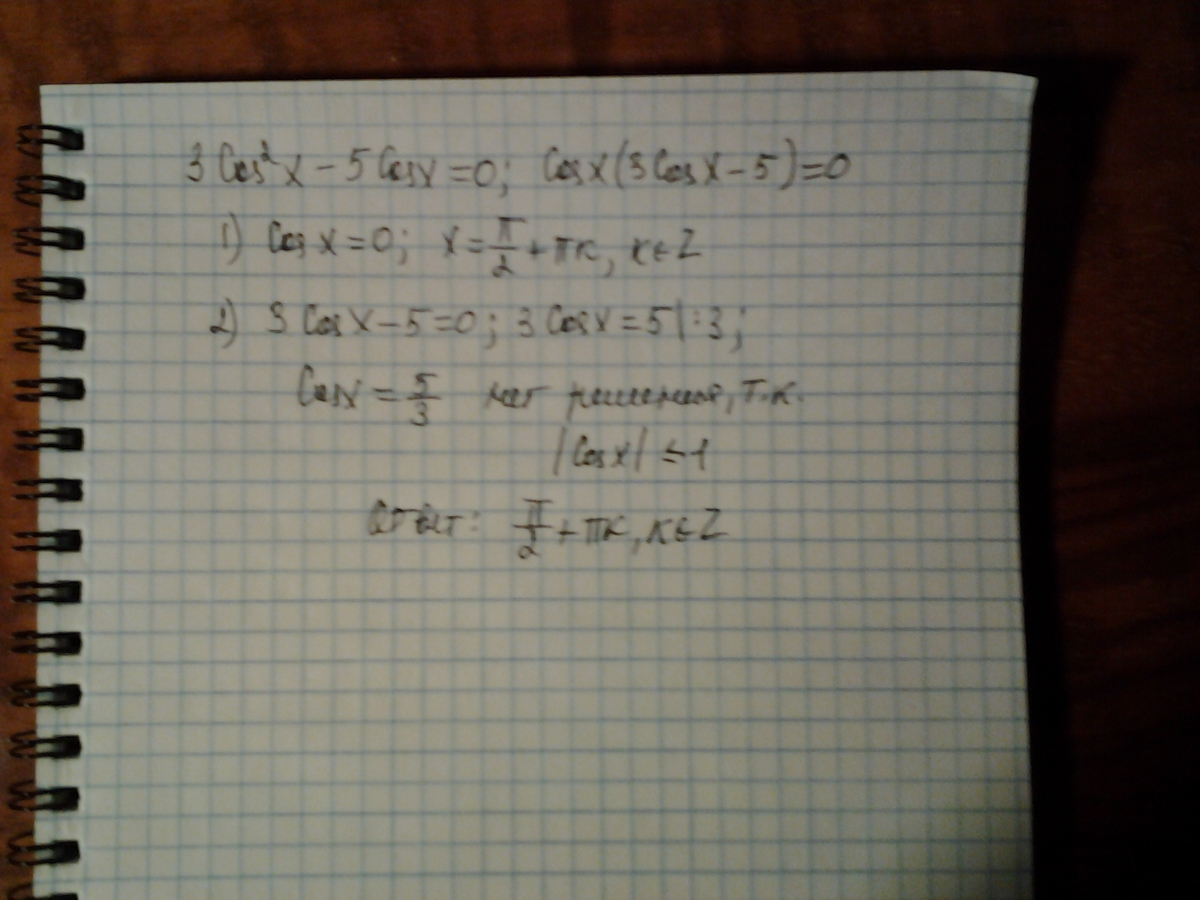 3 Cos²x - 5 Cosx = 0; Cosx(3 Cosx - 5) = 0
1) Cos x = 0; x = π/2 + πк, к ∈ Z
2) 3 Cosx - 5 = 0; 3 Cosx = 5 | : 3;
Cosx = 5/3 нет решения, т.к.
|Cosx| ≤ 1
Ответ: π/2 + πк, к ∈ Z